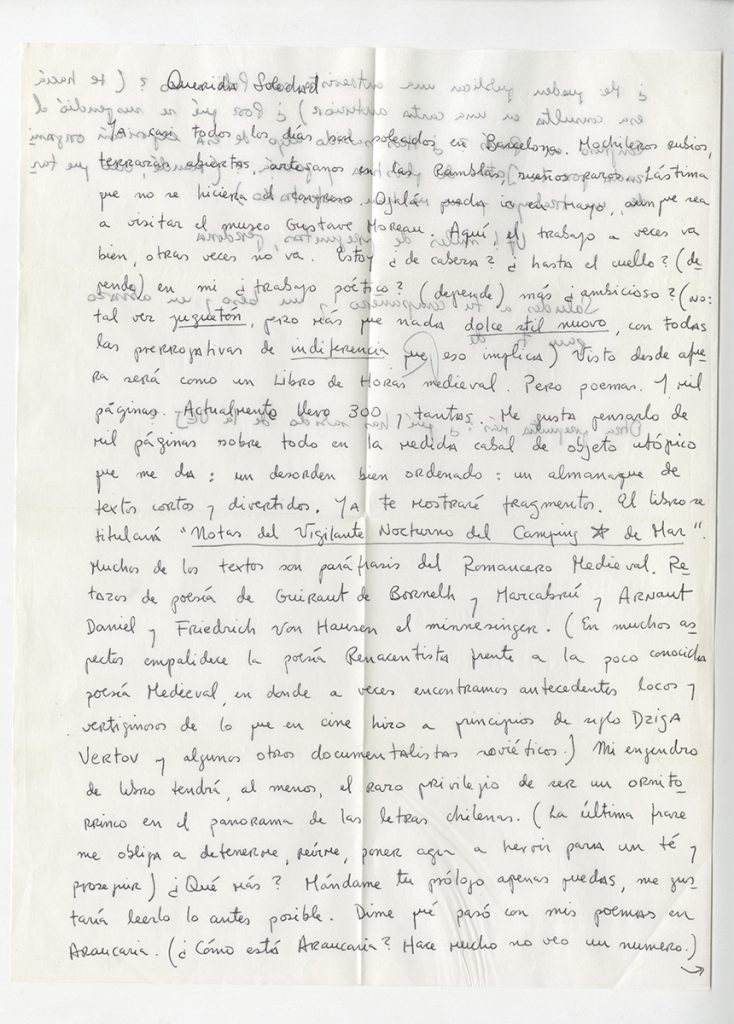 Querida Soledad
YA casi todos los días son soleados en Barcelona. Mochileros rubios,
terrazas abiertas, artesanos en las Ramblas, sueños raros. Lástima
que no se hiciera el congreso. Ojalá pueda ir en mayo, aunque sea
a visitar el museo Gustave Moreau. Aquí el trabajo a veces va
bien, otras veces no va. Estoy ¿de cabeza? ¿hasta el cuello? (de-
pende) en mi ¿trabajo poético? (depende) más ¿ambicioso? (no:
tal vez juguetón, pero más que nada dolce stil nuovo, con todas
las prerrogativas de indiferencia que eso implica) Visto desde afue-
ra será como un Libro de Horas medieval. Pero poemas. Y mil
páginas. Actualmente llevo 300 y tantas. Me gusta pensarlo de
mil páginas sobre todo en la medida cabal de objeto utópico
que me da: un desorden bien ordenado: un almanaque de
textos cortos y divertidos. YA te mostraré fragmentos. El libro se
titulará "Notas del Vigilante Nocturno del Camping ☆ de Mar".
Muchos de los textos son paráfrasis del Romancero Medieval. Re-
tazos de poesía de Guiraut de Bornelh y Marcabrú y Arnaut
Daniel y Friedrich von Hausen el minnesinger. (En muchos as-
pectos empalidece la poesía Renacentista frente a la poco conocida
poesía Medieval, en donde a veces encontramos antecedentes locos y
vertiginosos de lo que en cine hizo a principios de siglo Dziga
Vertov y algunos otros documentalistas soviéticos.) Mi engendro
de libro tendrá, al menos, el raro privilegio de ser un ornito-
rrinco en el panorama de las letras chilenas. (La última frase
me obliga a detenerme, reírme, poner agua a hervir para un té y
proseguir) ¿Qué más? Mándame tu prólogo apenas puedas, me gus-
taría leerlo lo antes posible. Dime qué pasó con mis poemas en
Araucaria. (¿Cómo está Araucaria? Hace mucho no veo un numero.)